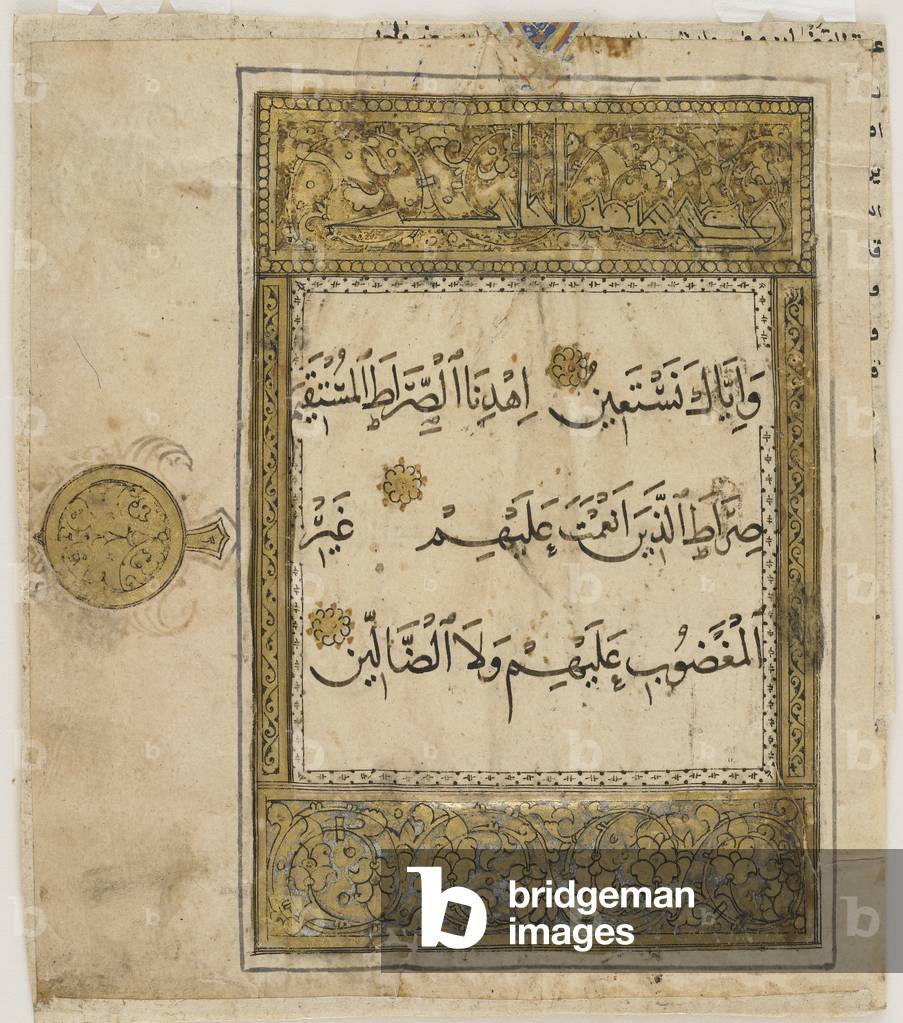 وَإِيَّاكَ نَسْتَعِينُ اِهْدِنَا ٱلْصِّرَاطَ ٱلْمُسْتَقِيمَ
صِرَاطَ ٱلَّذِينَ اَنْعَمْتَ عَلَيْهِمْ غَيْرِ
ٱلْمَغْضُوبِ عَلَيْهِمْ وَلَا ٱلْضَّالِّينَ
bridgeman
images